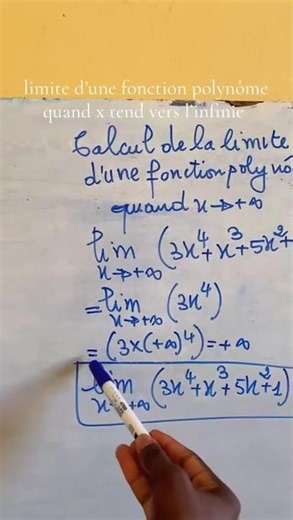 limite d'une fonction polynôme
quand x tend vers l'infinie
Calcul de la limite
d'une fonction polynô
quand x→+∞
lim (3x⁴+x³+5x²+
x→+∞
=lim (3x⁴)
x→+∞
=(3×(+∞)⁴)=+∞
lim (3x⁴+x³+5x²+1)
x→+∞